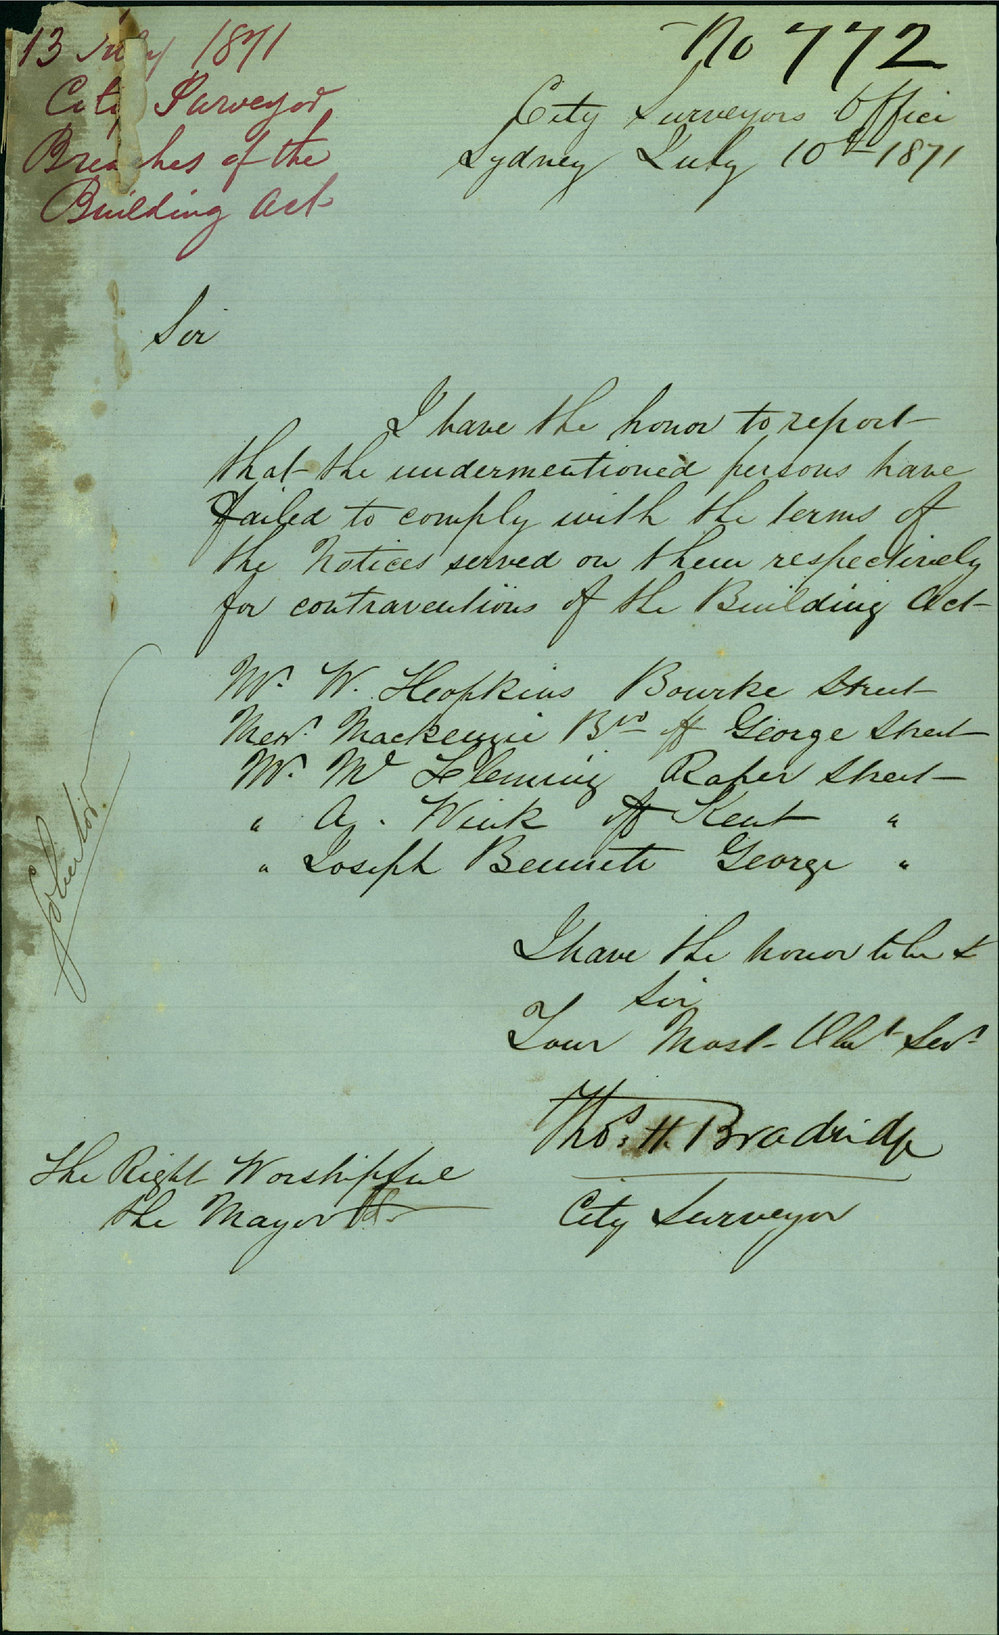 13 July 1871
City Surveyor
Breaches of the
Building Act
No 772
City Surveyors Office
Sydney July 10th 1871
Sir
I have the honor to report
that the undermentioned persons have
failed to comply with the terms of
the Notices served on them respectively
for contraventions of the Building Act
Mr. W. Hopkins Bourke Street
Messrs. Mackenzie Bros off George Street
Mr. Mc Fleming Raper Street
" A. Wink off Kent "
" Joseph Bennett George "
Solicitor
I have the honor to be &
Sir
Your Most Obt Servt
Thos. H. Bradridge
City Surveyor
The Right Worshipful
the Mayor